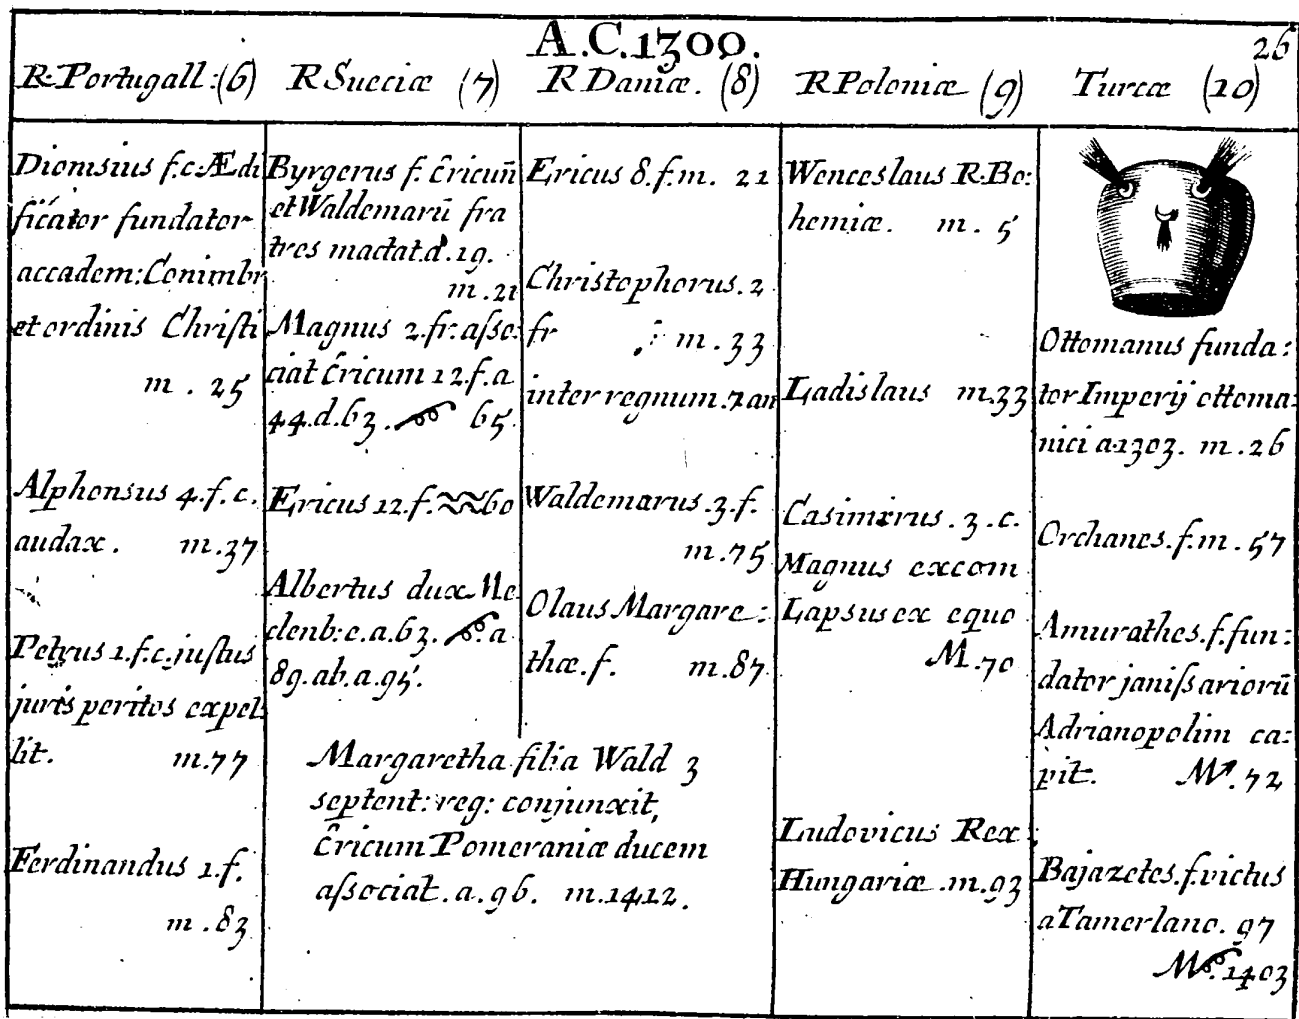 A.C.1300.
26
R.Portugall:(6)
R Sueciæ (7)
R Daniæ. (8)
R Poloniæ (9)
Turcæ (10)
Dionisius f.c. Ædi
ficator fundator
accadem: Conimbr
et ordinis Christi
m. 25
Alphonsus 4. f. c.
audax. m.37
Petrus 1. f.c. justus
juris peritos expel
lit. m.77
Ferdinandus 1. f.
m. 83
Byrgerus f. Ericuñ
et Waldemarū fra
tres mactat. d. 19.
m. 21
Magnus 2. fr. asso:
ciat Ericum 12. f. a
44. d. 63. 65.
Ericus 12. f. 60
Albertus dux Me
clenb: e. a. 63. a
89. ab. a. 95.
Ericus 8. f. m. 21
Christophorus. 2
fr m. 33
inter regnum. 7 an
Waldemarus. 3. f.
m. 75
Olaus Margare:
thæ. f. m. 87
Margaretha filia Wald 3
septent: reg: conjunxit,
Ericum Pomeraniæ ducem
associat. a. 96. m. 1412.
Wenceslaus R. Bo:
hemiæ. m. 5
Ladislaus m. 33
Casimirus. 3. c.
Magnus excom
Lapsus ex equo
M. 70
Ludovicus Rex
Hungariæ. m. 93
Ottomanus funda:
tor Imperij ottoma:
nici a. 1303. m. 26
Orchanes. f. m. 57
Amurathes. f. fun:
dator janissariorū
Adrianopolim ca:
pit. M. 72
Bajazetes. f. victus
a Tamerlano. 97
M. 1403